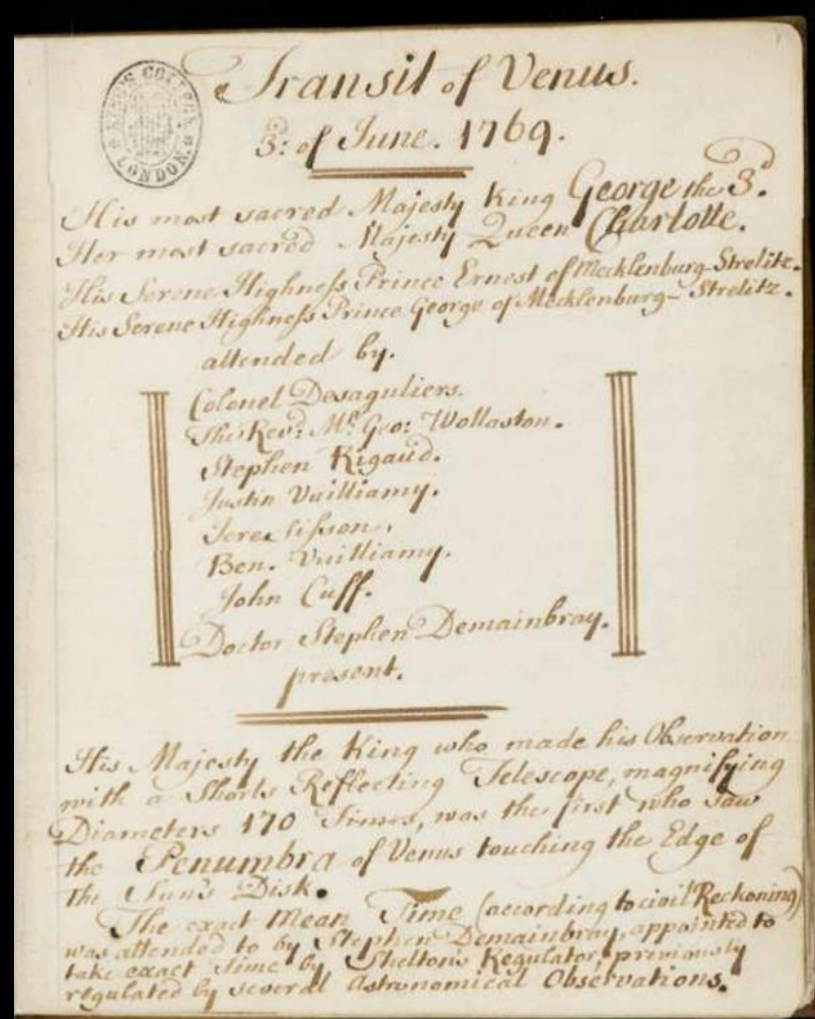 KING'S COLLEGE LONDON.
Transit of Venus.
3: of June. 1769.
His most sacred Majesty King George the 3.d
Her most sacred Majesty Queen Charlotte.
His Serene Highneſs Prince Ernest of Mecklenburg-Strelitz.
His Serene Highneſs Prince George of Mecklenburg-Strelitz.
attended by.
Colonel Desaguliers.
The Rev:d Mr. Geo: Wollaston.
Stephen Rigaud.
Justin Vulliamy.
Jere. Siſson.
Ben. Vulliamy.
John Cuff.
Doctor Stephen Demainbray.
present.
His Majesty the King who made his Observation
with a Shorts Reflecting Telescope, magnifying
Diameters 170 Times, was the first who saw
the Penumbra of Venus touching the Edge of
the Sun's Disk.
The exact Mean Time (according to civil Reckoning)
was attended to by Stephen Demainbray, appointed to
take exact Time by Shelton's Regulator, previously
regulated by several Astronomical Observations.